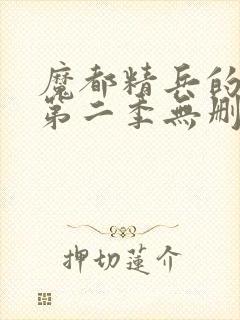 魔都精兵的
第二季無刪
押切蓮介